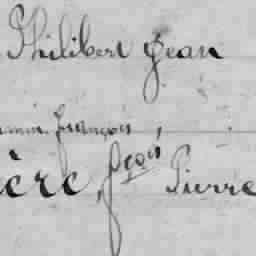 Philibert Jean
François,
ère, fçois Pierre